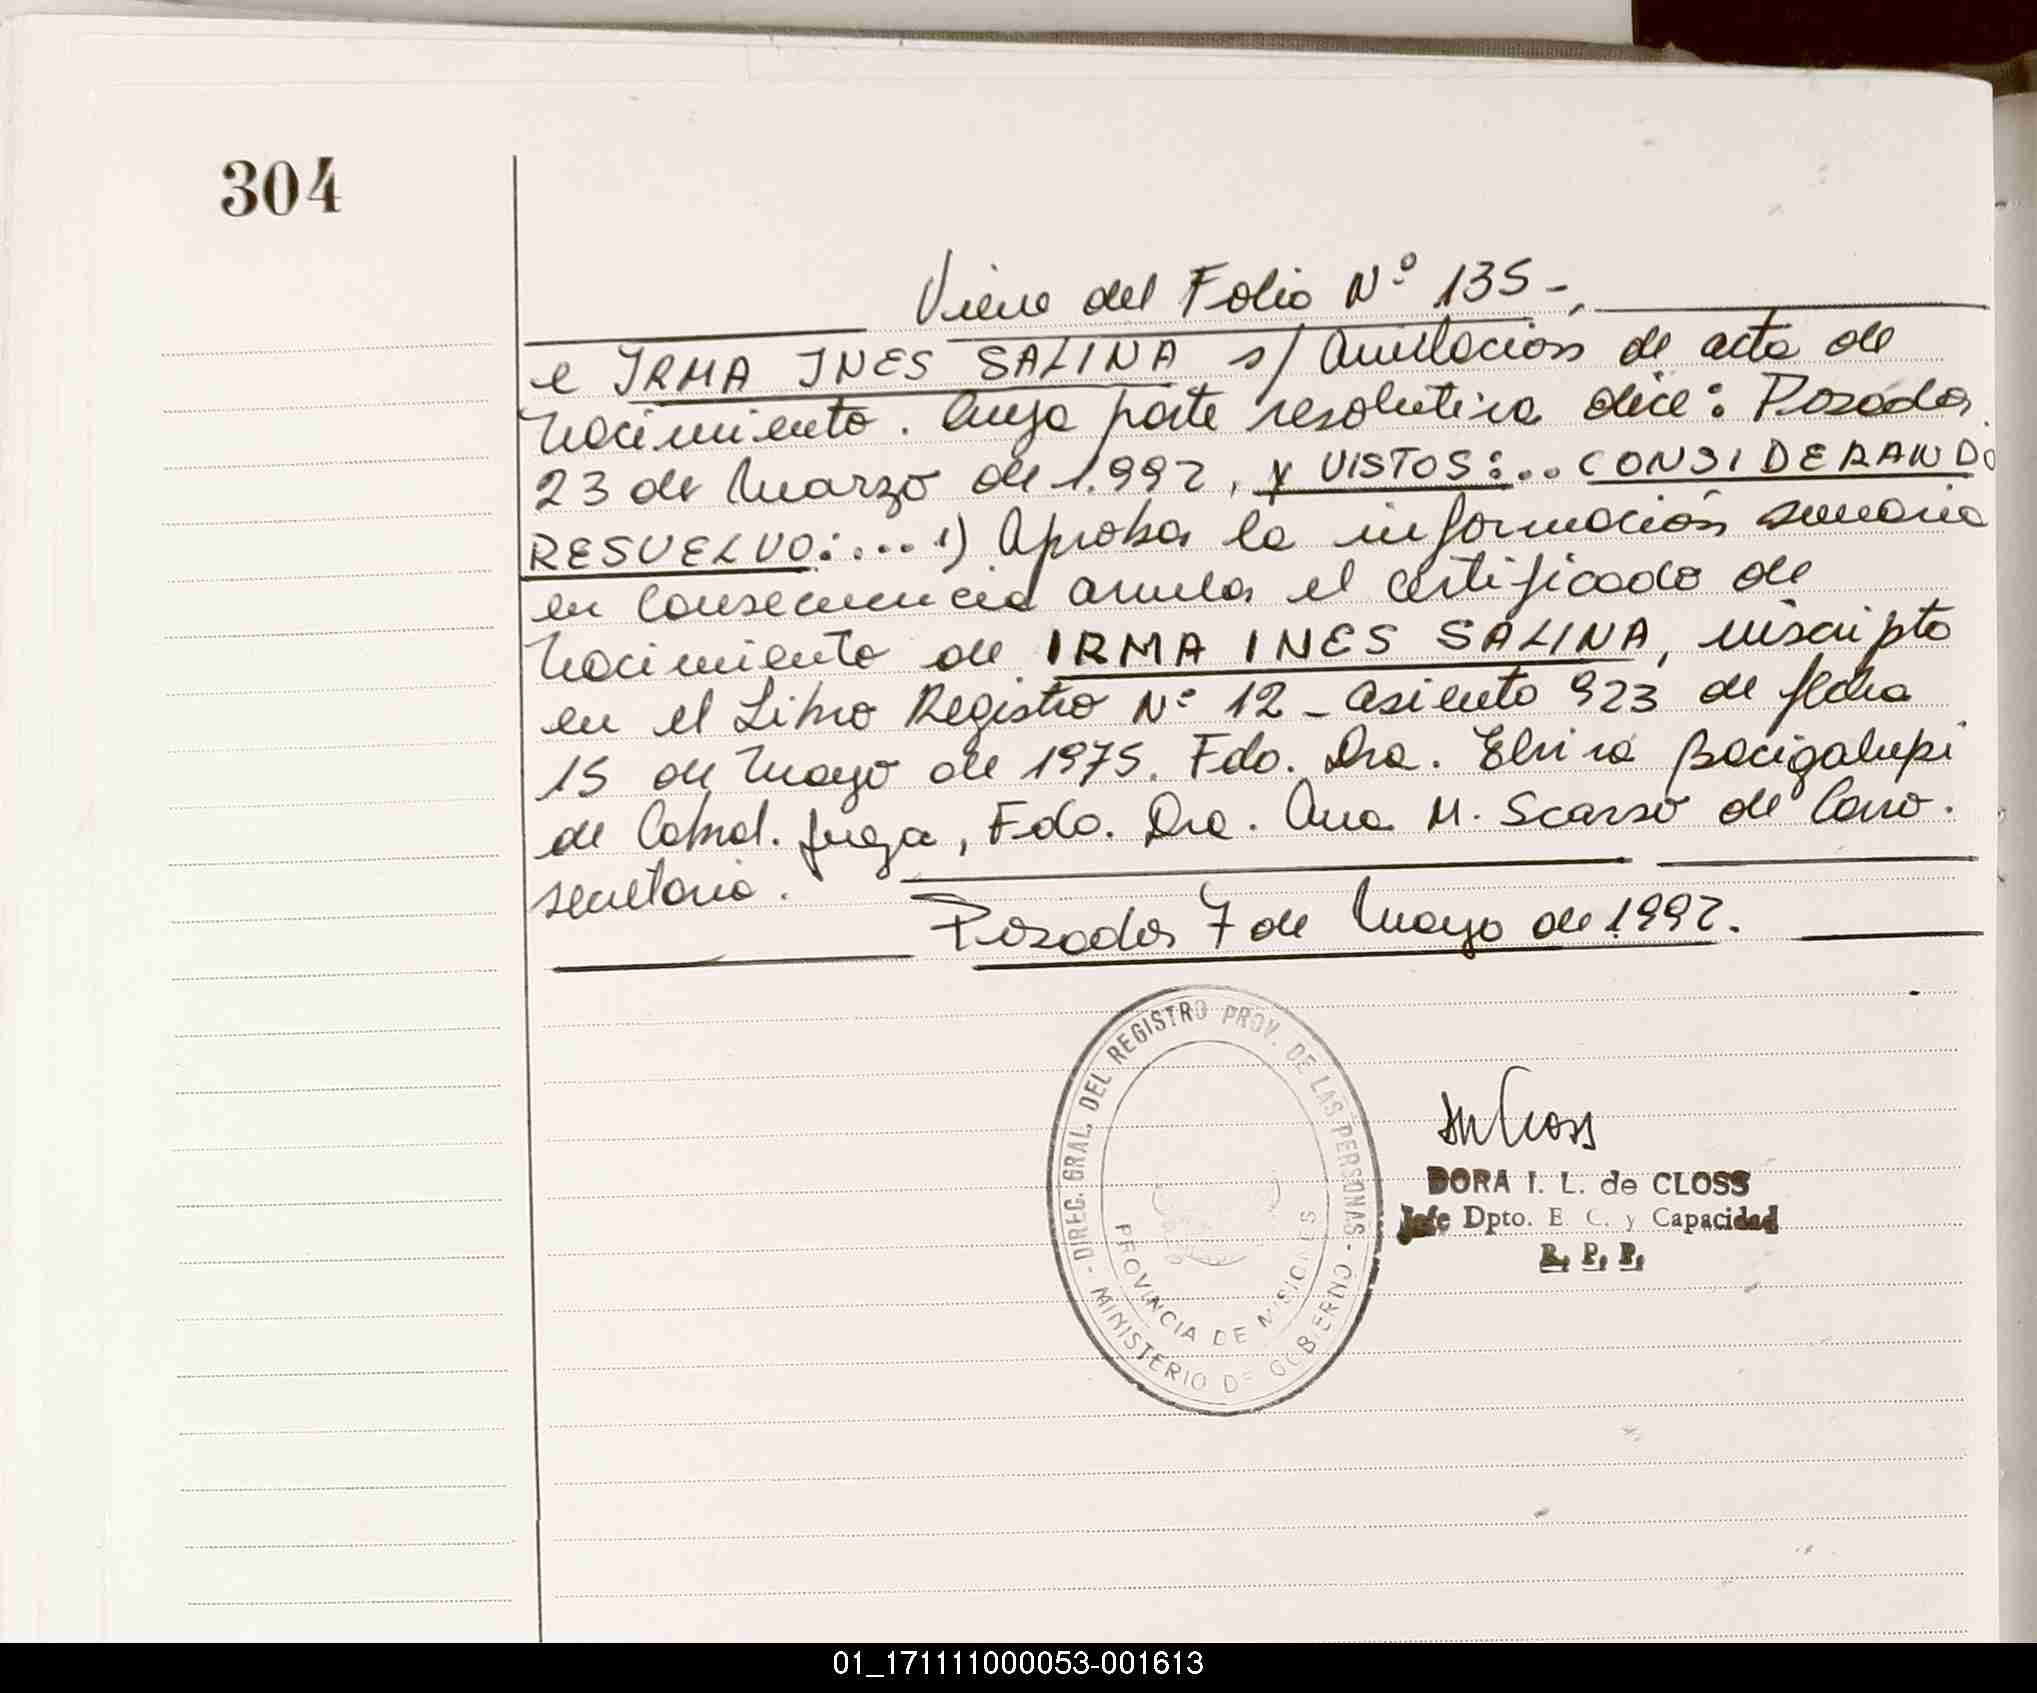 304
Viene del Folio Nº 135-.
e IRMA INES SALINA s/ Anulación de acta de
nacimiento. Cuya parte resolutiva dice: Posadas
23 de Marzo de 1.992, Y VISTOS:.. CONSIDERANDO
RESUELVO:... 1) Aprobar la información sumaria
en consecuencia anular el certificado de
nacimiento de IRMA INES SALINA, inscripto
en el Libro Registro Nº 12 - asiento 923 de fecha
15 de Mayo de 1975. Fdo. Dra. Elvira Bacigalupi
de Cabral. Jueza, Fdo. Dra. Ana M. Scarso de Carro.
secretaria.
Posadas 7 de Mayo de 1.992.
DIREC. GRAL. DEL REGISTRO PROV. DE LAS PERSONAS - MINISTERIO DE GOBIERNO -
PROVINCIA DE MISIONES
DORA I. L. de CLOSS
Jefe Dpto. E. C. y Capacidad
R. P. P.
01_171111000053-001613